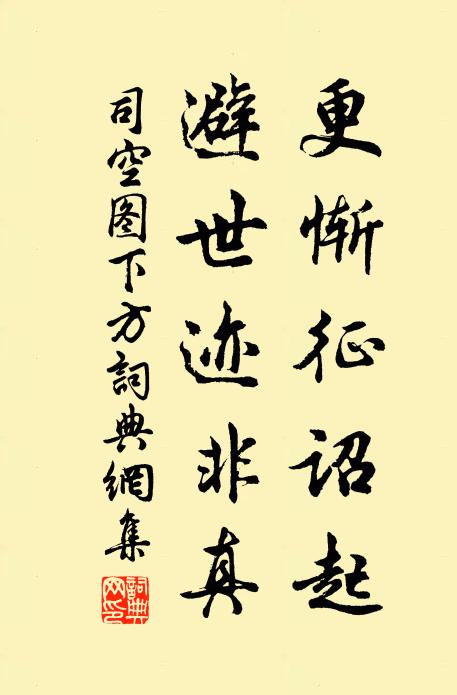 更惭征诏起
避世迹非真
司空图下方詞典網集
詞典網印